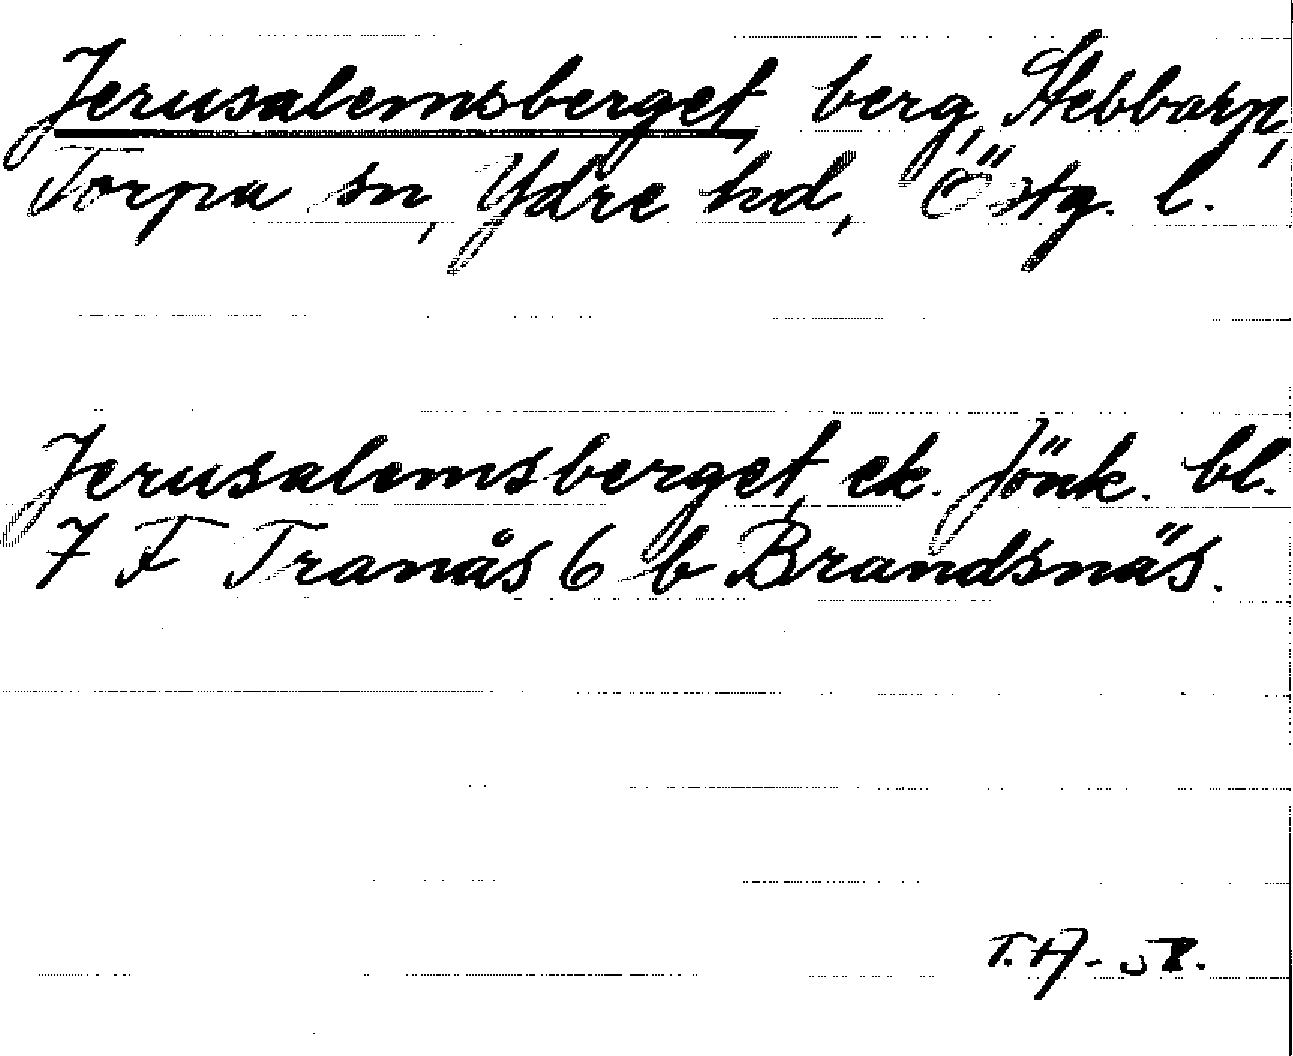 Jerusalemsberget, berg, Stebbarp,
Torpa sn, Ydre hd, Östg. l.
Jerusalemsberget, ek. Jönk. bl.
7 F Tranås 6 b Brandsnäs.